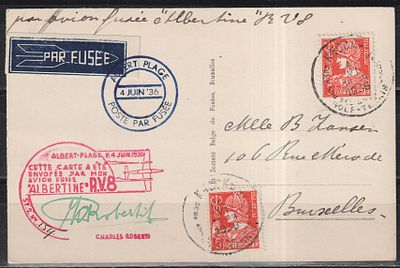 par avion fusée "Albertine" RV8
PAR FUSÉE
ALBERT PLAGE
4 JUIN '36
POSTE PAR FUSÉE
Société Belge de Fusées, Bruxelles
Mlle B Hansen
106 Rue Mérode
Bruxelles
ALBERT-PLAGE LE 4 JUIN 1936
CETTE CARTE A ÉTÉ
ENVOYÉE PAR MON
AVION FUSÉE
"ALBERTINE" RV8
CHARLES ROBERTI